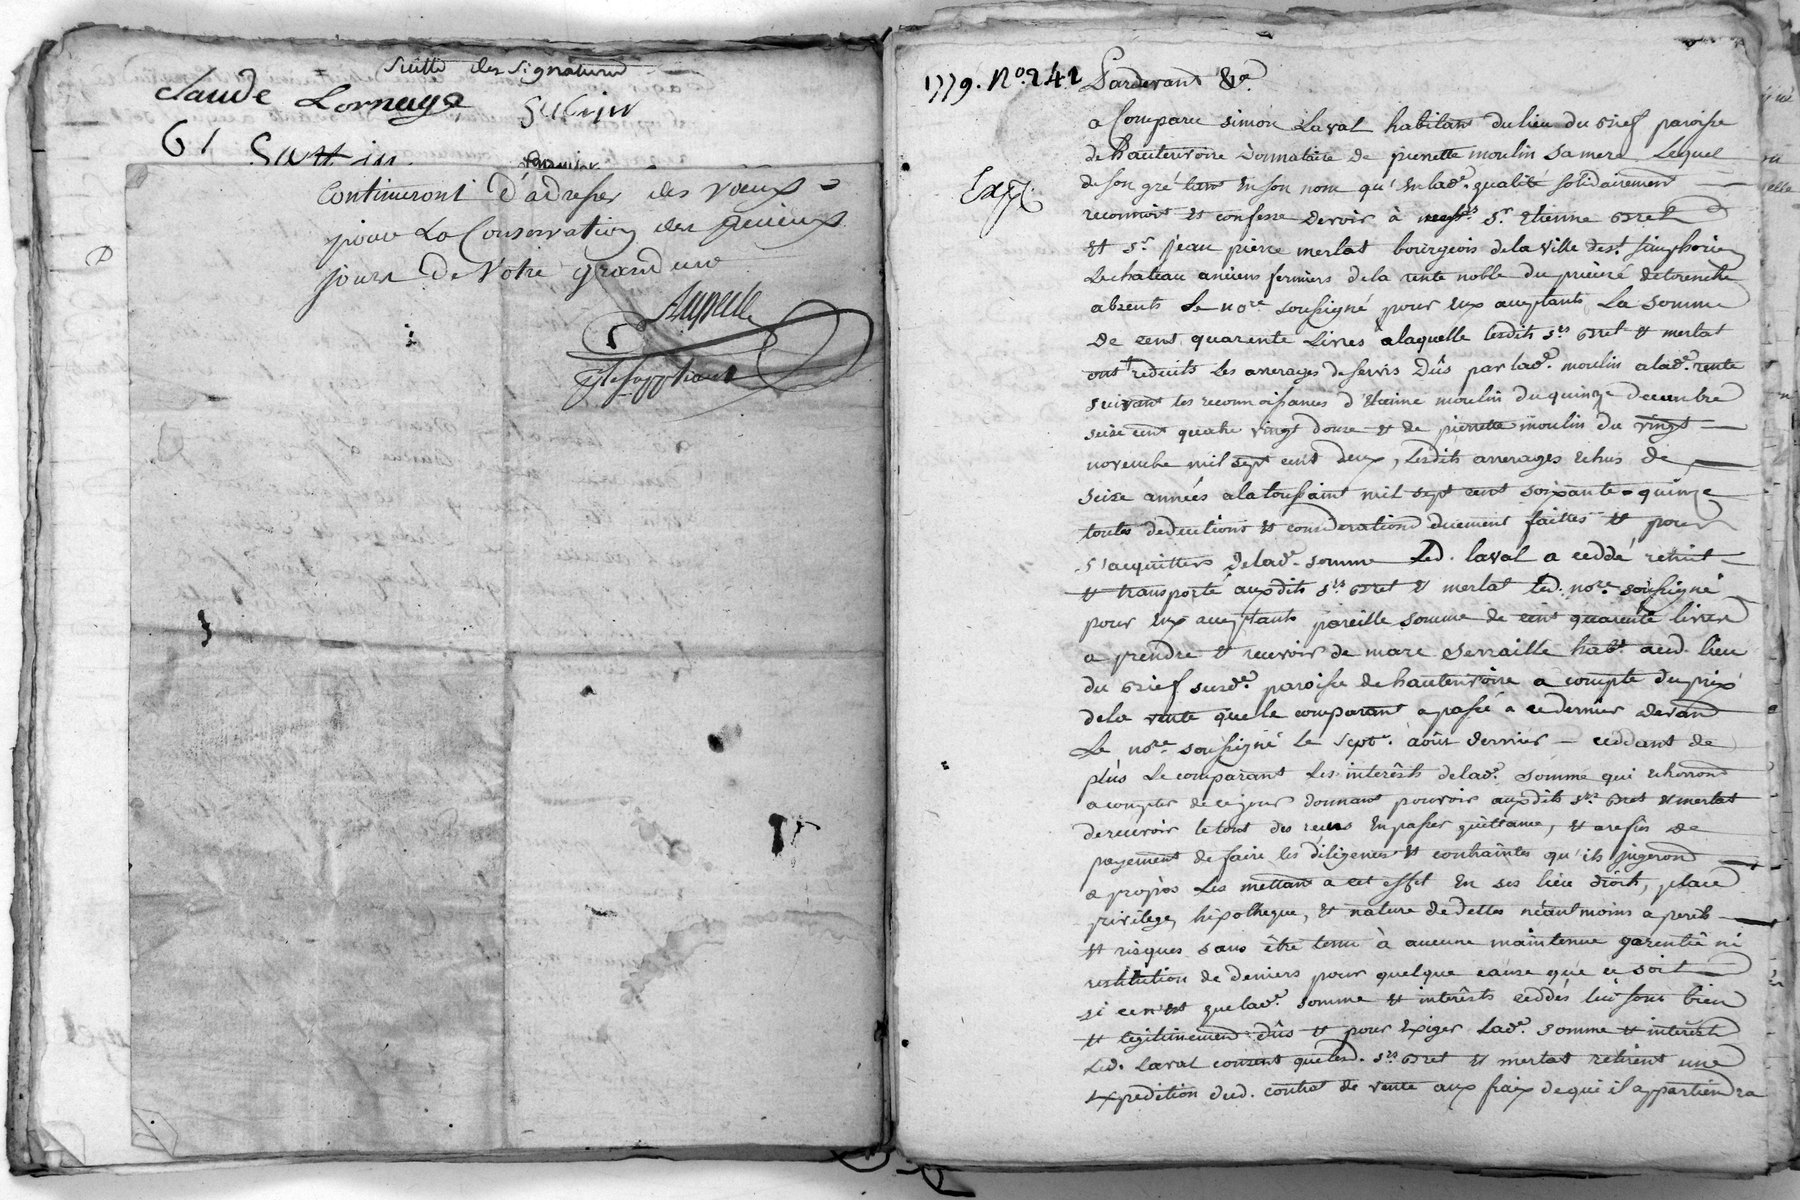 Suitte des signatures
Claude Lornage
61
continueront d'adresser des vœux
pour La Conservation des précieux
jours De Votre grandeur
1779. No. 242
Pardevant &a.
a Comparu simon Laval habitant du lieu du brief paroisse
de hauterivoire donnataire de pierrette moulin sa mere Lequel
de son gré tant en son nom qu'en lade. qualité solidairement
reconnoit et confesse devoir à messrs. sr. Etienne bret
et sr. jean pierre merlat bourgeois de la ville de st. simphorien
Le chateau anciens fermiers de la rente noble du prieuré de
absents le nore. soussigné pour eux acceptants La somme
de cent quarente Livres à laquelle lesdits srs. bret et merlat
ont reduits Les arrerages de servis Dûs par lade. moulin a lade. rente
suivant les reconnoissances d'Etienne moulin du quinze decembre
seize cent quatre vingt douze et de pierrette moulin du vingt
novembre mil sept cent deux, lesdits arrerages echus de
seize années a la toussaint mil sept cent soixante-quinze
toutes deductions et considerations duement faittes et pour
s'acquitter de lade. somme Led. laval a ceddé remit
et transporté auxdits srs. bret et merlat led. nore. soussigné
pour eux acceptants pareille somme de cent quarente livres
a prendre et recevoir de marc serraille habt. aud. lieu
du brief surde. paroisse de hauterivoire a compte du prix
de la vente que le comparant a passé à ce dernier devant
Le nore. soussigné le sept. août dernier - ceddant de
plus Le comparant Les interêsts de lade. somme qui echorront
a compter de ce jour donnant pouvoir auxdits srs. bret et merlat
de recevoir le tout des reçus en passer quittance, et a refus de
payement de faire les diligences et contraintes qu'ils jugeront
a propos Les mettant a cet effet En ses lieu droit, place
privilege, hipotheque, et nature de dettes néantmoins a perils
et risques sans être tenu à aucune maintenue garentie ni
restitution de deniers pour quelque cause que ce soit
si ce n'est que lade. somme et interêts ceddés lui sont bien
et legitimement dûs et pour exiger lade. somme et interêts
Led. Laval consent que lesd. srs. bret et merlat retirent une
expedition dud. contrat de vente aux fraix de qui il appartiendra